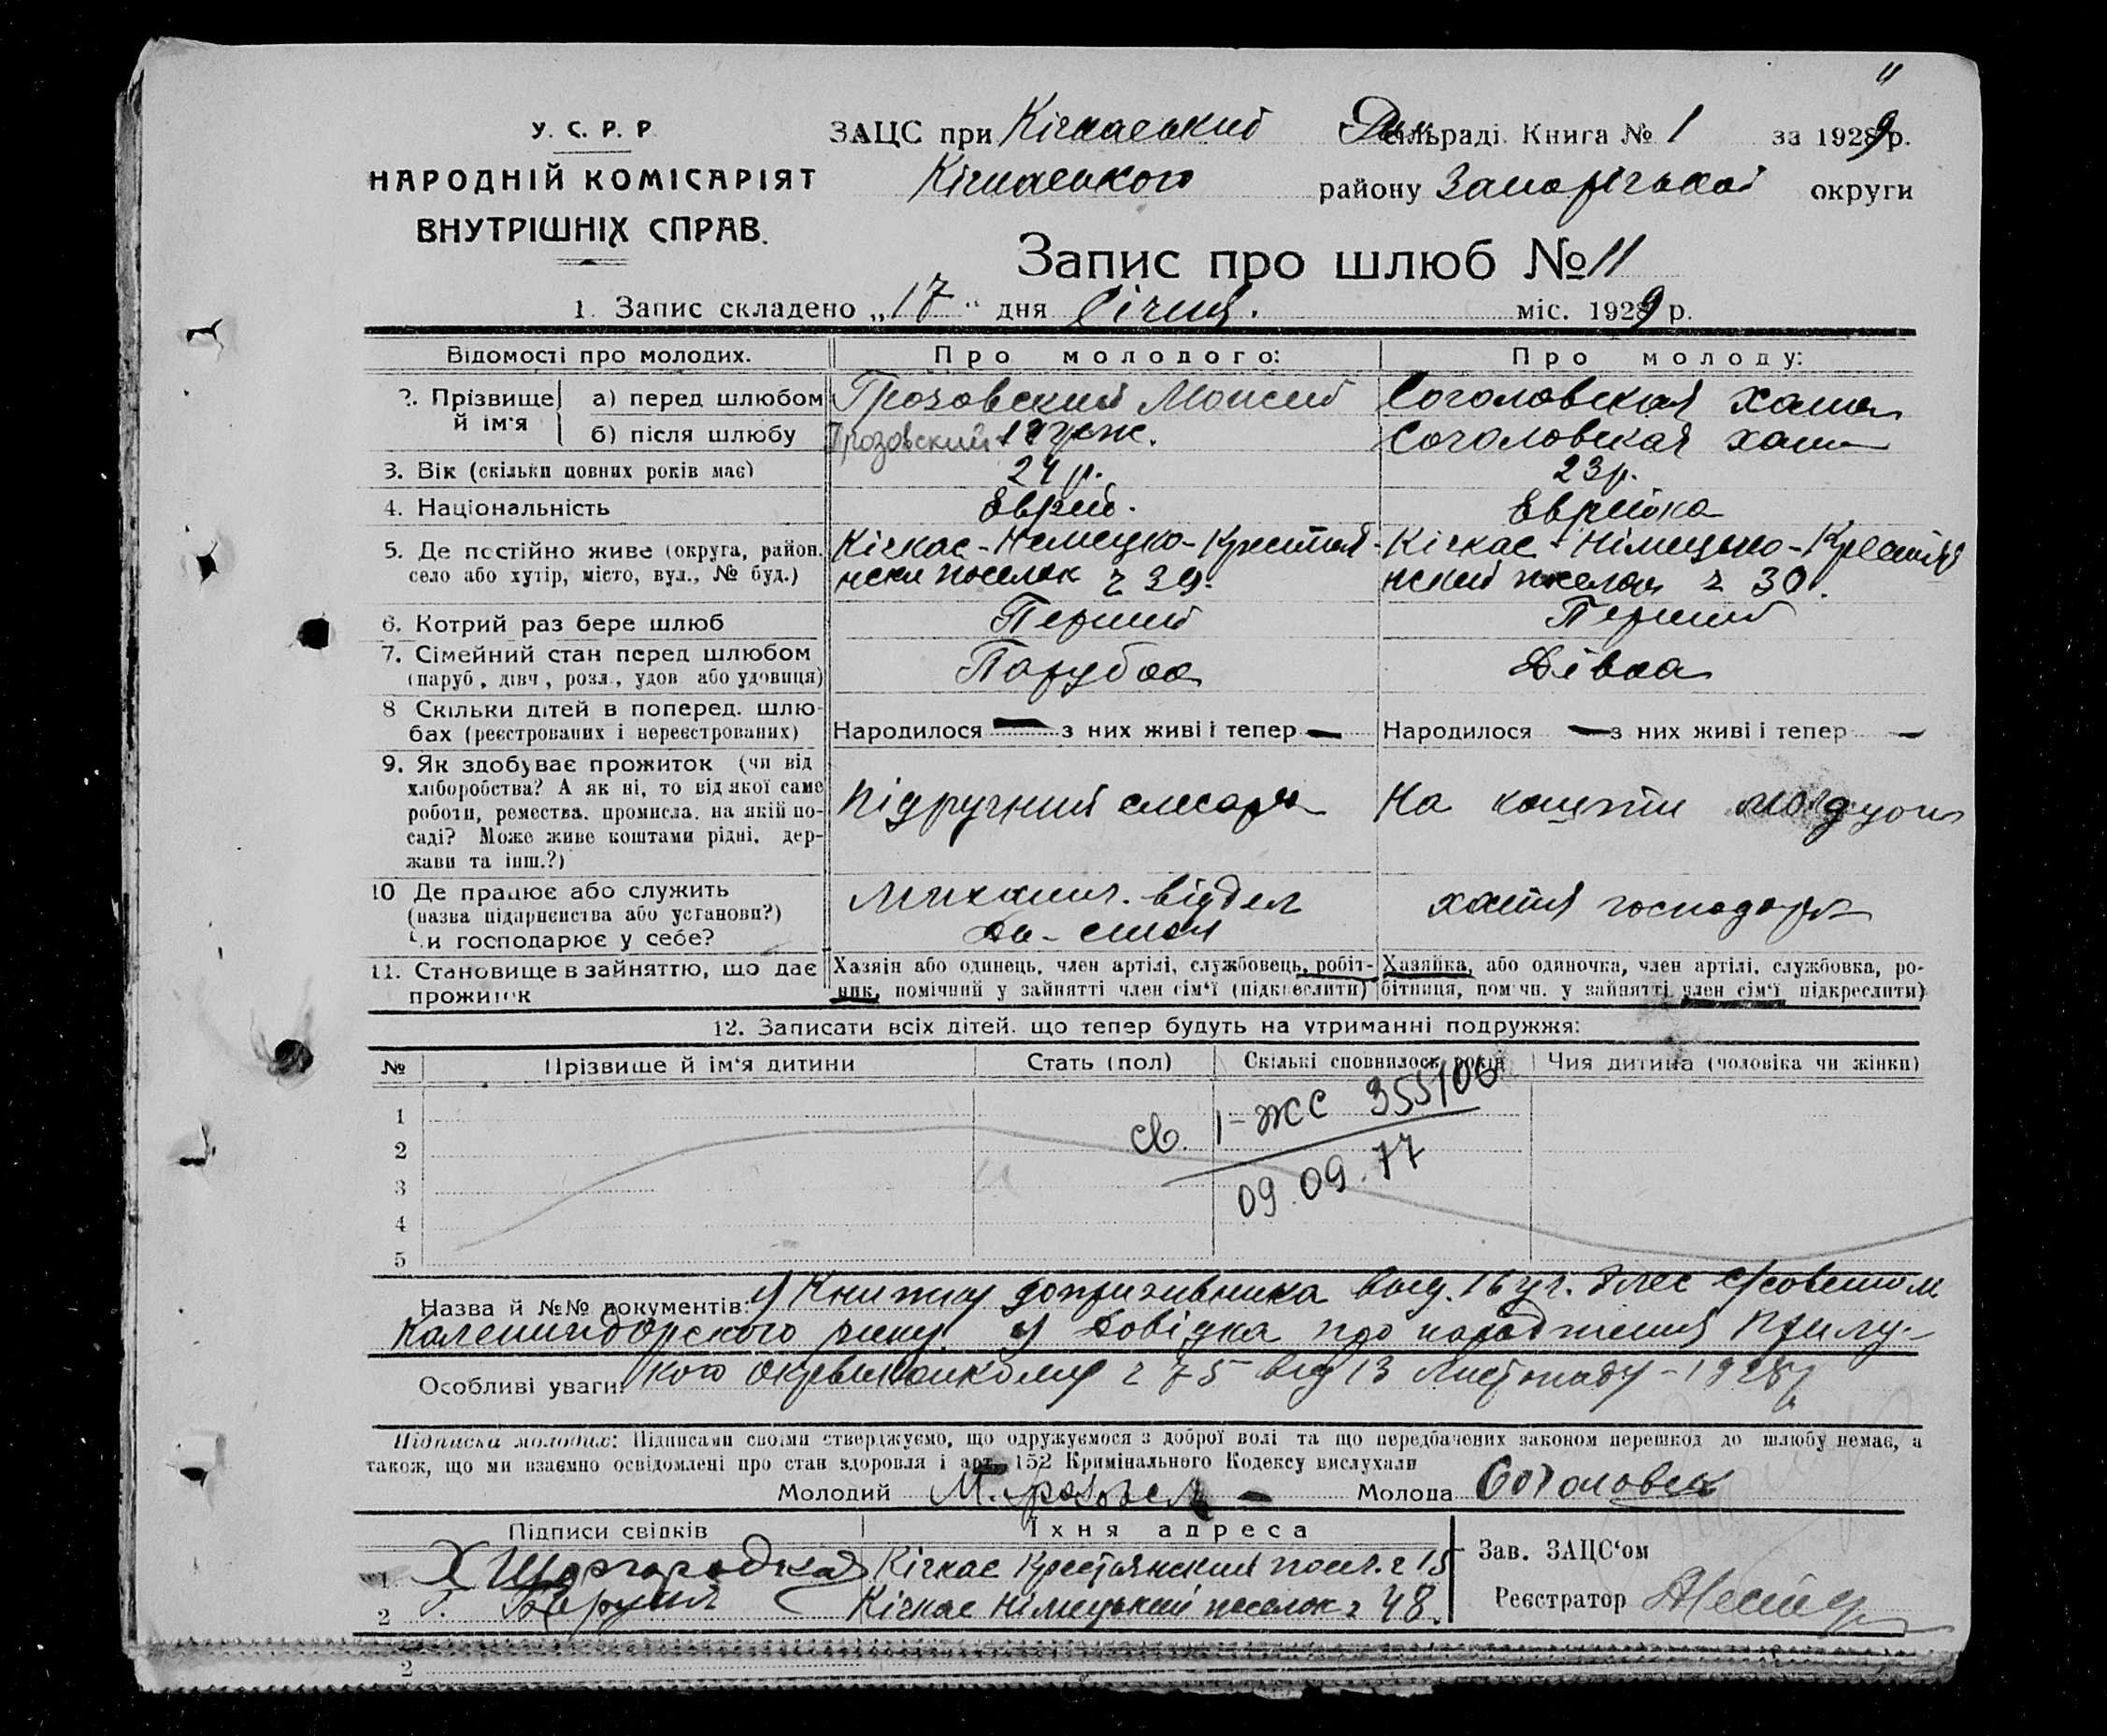 11
У. С. Р. Р.
НАРОДНІЙ КОМІСАРІЯТ
ВНУТРІШНІХ СПРАВ.
ЗАЦС при Кічкаський сільраді. Книга № 1 за 1929 р.
Кічкаського району Запорізької округи
Запис про шлюб № 11
1. Запис складено „17“ дня Січня. міс. 1929 р.
Відомості про молодих. Про молодого: Про молоду:
2. Прізвище й ім'я
а) перед шлюбом Грозовский Моисей Соголовская Хана
б) після шлюбу Грозовский Соголовская Хана
3. Вік (скільки повних років має) 24 р. 23 р.
4. Національність Еврей. Еврейка
5. Де постійно живе (округа, район, Кічкас - Немецко - Крестья- Кічкас - Німецько - Крестья
село або хутір, місто, вул., № буд.) нски поселок 39. нский поселок 30.
6. Котрий раз бере шлюб Перший Перший
7. Сімейний стан перед шлюбом Парубок Дівка
(паруб., дівч., розл., удов. або удовиця)
8 Скільки дітей в поперед. шлю-
бах (реєстрованих і нереєстрованих) Народилося — з них живі і тепер — Народилося — з них живі і тепер —
9. Як здобуває прожиток (чи від
хліборобства? А як ні, то від якої саме
роботи, ремества, промисла, на якій по- Підручний слесаря На кошти
саді? Може живе коштами рідні, дер-
жави та інш.?)
10 Де працює або служить Механич. відділ хатня господарка
(назва підприємства або установи?)
Чи господарює у себе?
11. Становище в зайняттю, що дає Хазяїн або одинець, член артілі, службовець, робіт- Хазяйка, або одиночка, член артілі, службовка, ро-
прожиток ник, помічний у зайнятті член сім'ї (підкреслити) бітниця, помічн. у зайнятті член сім'ї підкреслити)
12. Записати всіх дітей, що тепер будуть на утриманні подружжя:
№ Прізвище й ім'я дитини Стать (пол) Скількі сповнилось років Чия дитина (чоловіка чи жінки)
1
2
3
4
5
св. I-ЖС 355106
09.09.77
Назва й №№ документів: 1) Книжка допризивника вид. 16 уч.
Калениндорского 2) Довідка про народження Прилу-
Особливі уваги: кого Окрвиконкому 75 від 13 Листопаду - 1928 р
Підписка молодих: Підписами своїми стверджуємо, що одружуємося з доброї волі та що передбачених законом перешкод до шлюбу немає, а
також, що ми взаємно освідомлені про стан здоровля і арт. 152 Кримінального Кодексу вислухали
Молодий М. Грозовск Молода Соголовск
Підписи свідків Їхня адреса
1. Х Шаргородская Кічкас Крестьянский посел. 15
2 Кічкас Німецький поселок 48.
Зав. ЗАЦС'ом
Реєстратор
2